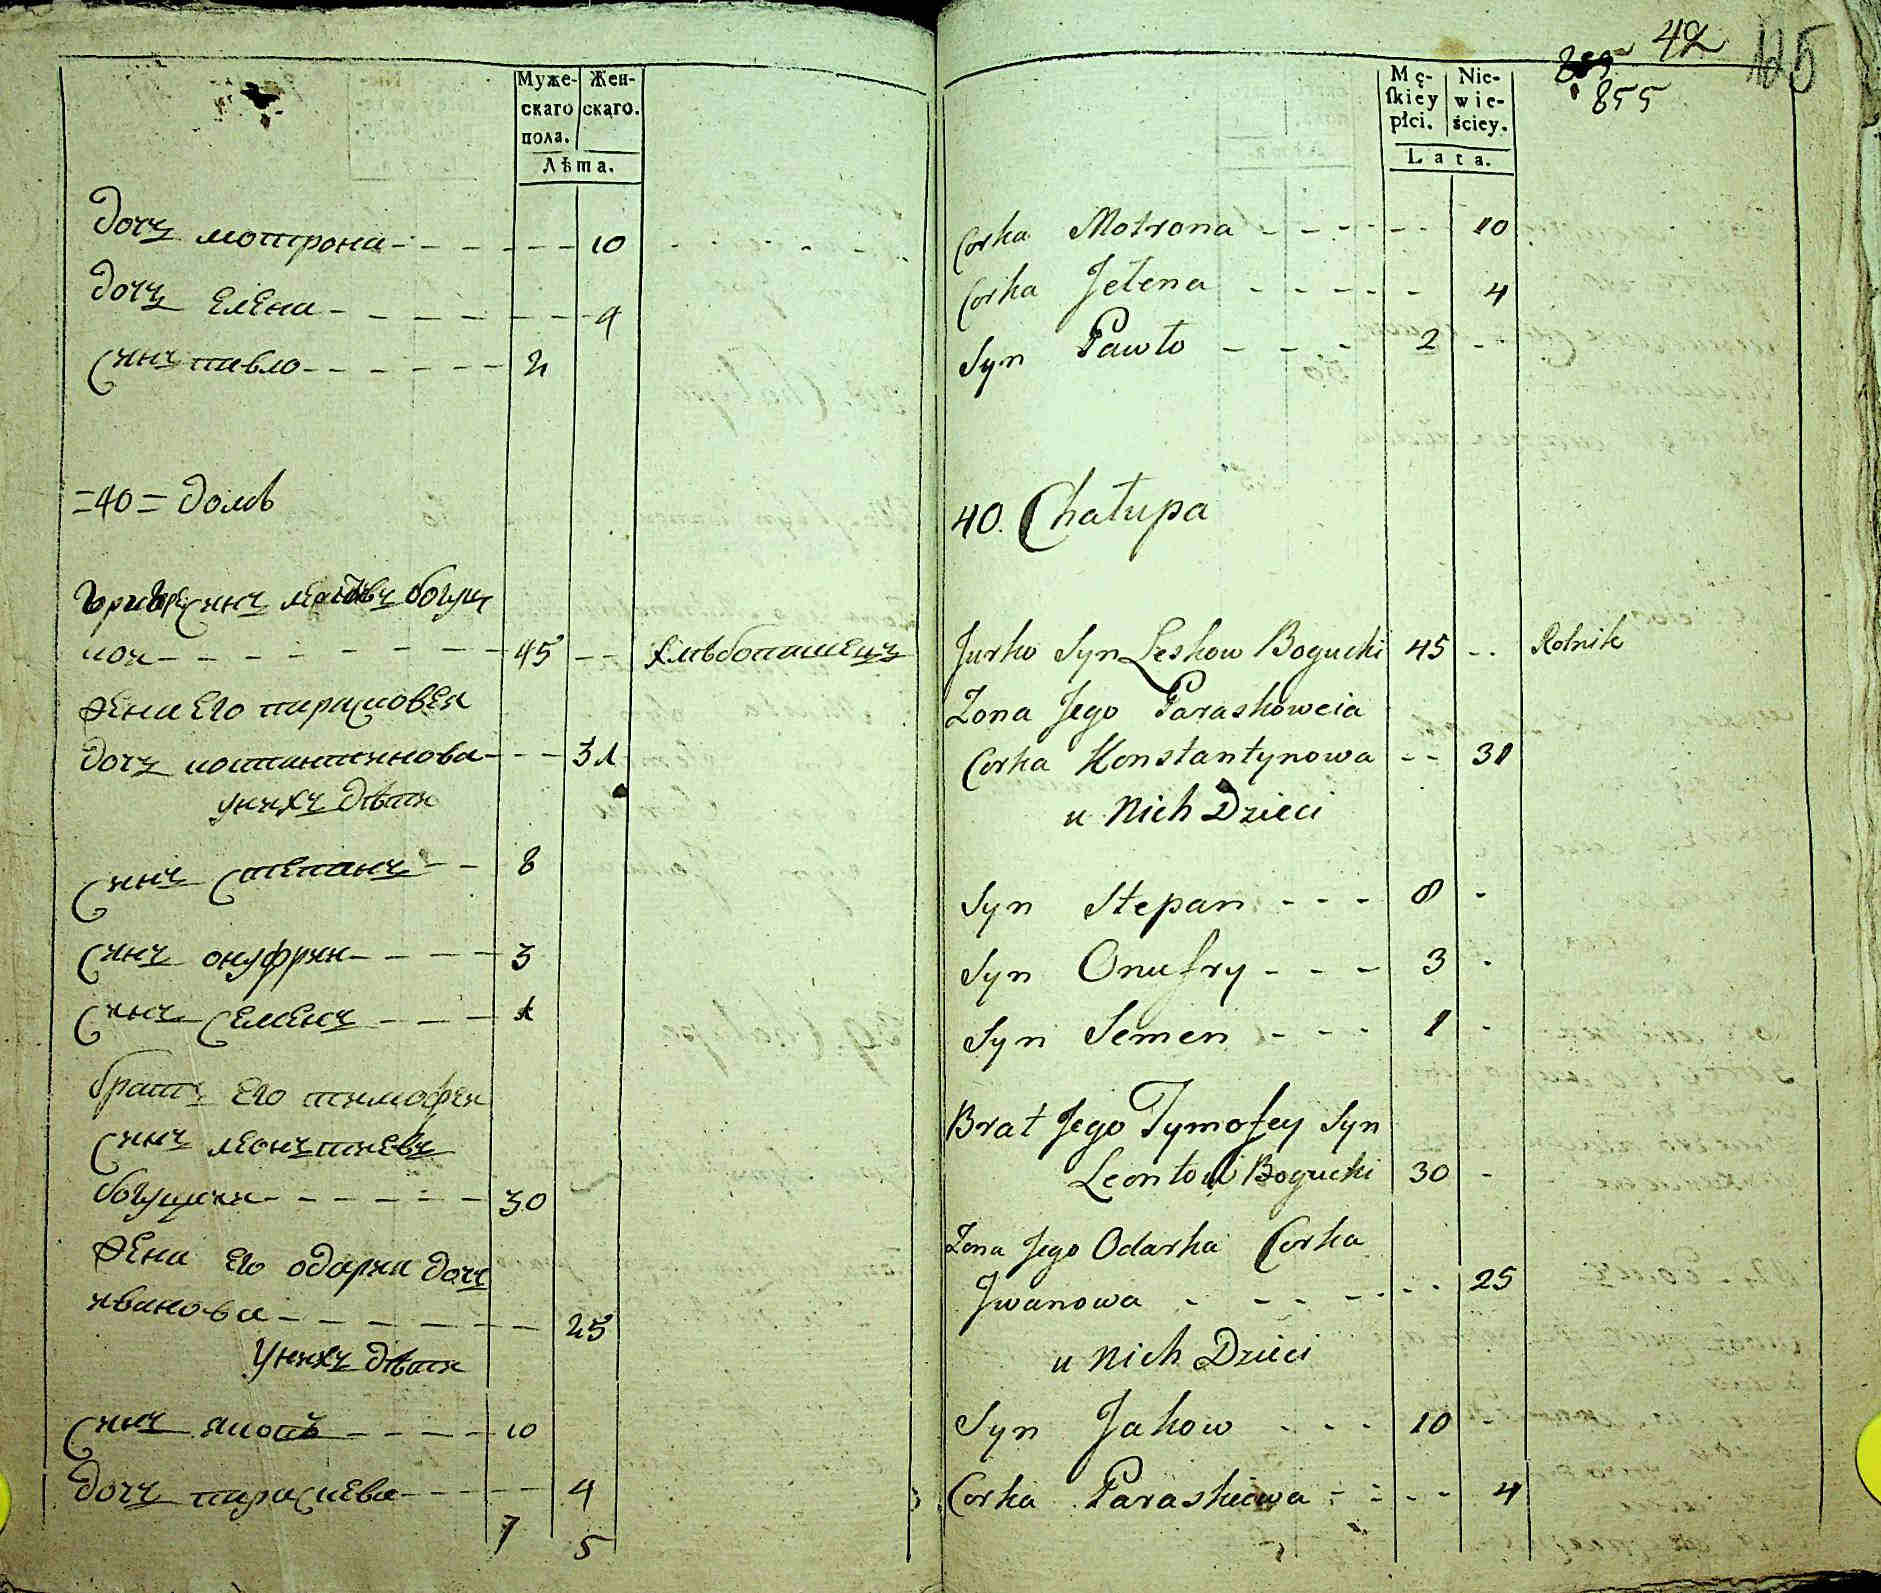 Муже-
скаго
пола.
Жен-
скаго.
Лѣта.
дочъ мотрона - - - - - - 10
дочъ елена - - - - - - 4
синъ павло - - - - - - 2
=40= домъ
синъ богуц
кои - - - - - - 45 - - хлѣбопашецъ
жена его парасковея
дочъ костантинова - - - 31
унихъ дѣти
синъ степанъ - - 8
синъ онуфрии - - - - 3
синъ семенъ - - - - 1
братъ его тимофеи
синъ леонътиевъ
богуцкии - - - - - - 30
жена его одарка дочъ
иванова - - - - - - 25
унихъ дѣти
синъ яковъ - - - - 10
дочъ параскева - - - - - 4
7 5
42 125
855
Mę-
skiey
płci.
Nie-
wie-
ściey.
Lata.
Corka Motrona - - - - - - 10
Corka Jełena - - - - - - 4
Syn Pawło - - - 2 -
40. Chałupa
Jurko Syn Leskow Bogucki 45 - - Rolnik
Zona Jego Paraskoweia
Corka Konstantynowa - - 31
u Nich Dzieci
Syn Stepan - - - 8 -
Syn Onufry - - - 3 -
Syn Semen - - - 1 -
Brat Jego Tymofey Syn
Leontow Bogucki 30 -
Zona Jego Odarka Corka
Jwanowa - - - - - - 25
u Nich Dzieci
Syn Jakow - - - 10 -
Corka Paraskiewa - - - - 4